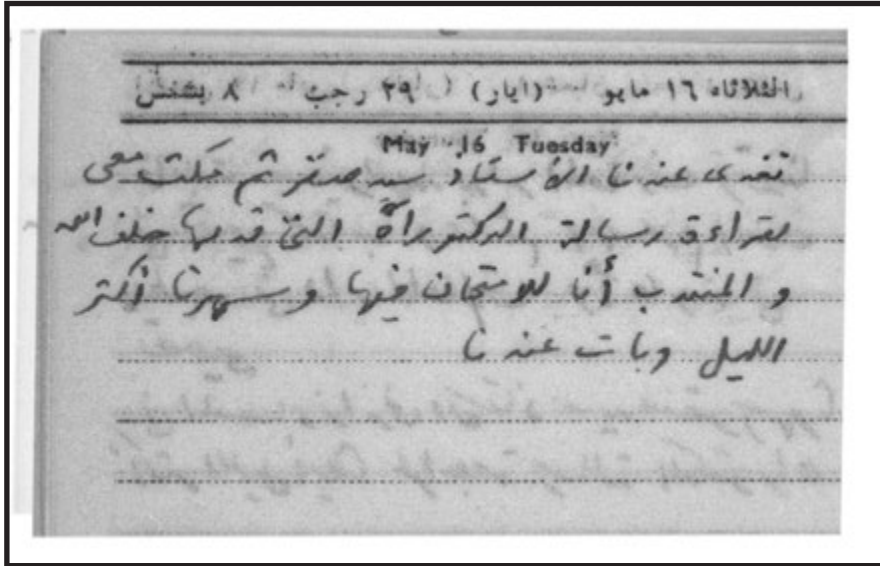 الثلاثاء ١٦ مايو (أيار) ٢٩ رجب ٨ بشنس
May 16 Tuesday
تغدى عندنا الأستاذ سيد صقر ثم مكث معى
لقراءة رسالة الدكتوراة التى قدمها خلف الله
و المنتدب أنا للامتحان فيها وسهرنا أكثر
الليل وبات عندنا